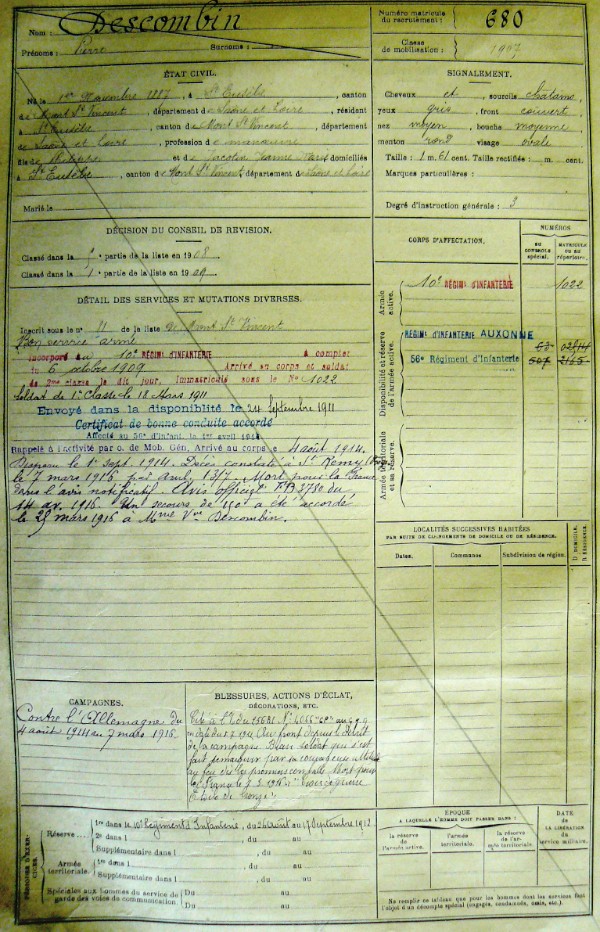 Nom : Descombin
Prénoms : Pierre Surnoms :
Numéro matricule du recrutement : 680
Classe de mobilisation : 1907
ÉTAT CIVIL.
Né le 1er Novembre 1887, à St Eusèbe, canton
de Mont St Vincent, département de Saône et Loire, résidant
à St Eusèbe, canton de Mont St Vincent, département
de Saône et Loire, profession de manœuvre
fils de Philippe et de Jeanne Marie domiciliés
à St Eusèbe, canton de Mont St Vincent, département de Saône et Loire
Marié le
SIGNALEMENT.
Cheveux et sourcils châtains
yeux gris front couvert
nez moyen, bouche moyenne
menton rond visage ovale
Taille : 1 m. 61 cent. Taille rectifiée : m. cent.
Marques particulières :
Degré d'instruction générale : 3
DÉCISION DU CONSEIL DE REVISION.
Classé dans la partie de la liste en 1908
Classé dans la 1e partie de la liste en 1909
DÉTAIL DES SERVICES ET MUTATIONS DIVERSES.
Inscrit sous le n° 11 de la liste de Mont St Vincent
Bon service armé
Incorporé au 10e RÉGIMENT D'INFANTERIE à compter
du 6 octobre 1909 Arrivé au corps et soldat
de 2me classe le dit jour, immatriculé sous le No 1022
Soldat de 1re Classe le 18 Mars 1911
Envoyé dans la disponiblité le 24 Septembre 1911
Certificat de bonne conduite accordé
Affecté au 56e d'Infant. le 1er avril 1914
Rappelé à l'activité par o. de Mob. Gén. Arrivé au corps le 4 août 1914.
Disparu le 1er sept. 1914. Décès constaté à St Remy
le 7 mars 1916 Mort pour la France
dans l'avis notificatif. Avis officiel du
14 av. 1916. Un secours de 150 f a été accordé
le 29 mars 1916 à Mme Vve Descombin.
CORPS D'AFFECTATION.
NUMÉROS
AU CONTROLE SPÉCIAL.
MATRICULE OU AU RÉPERTOIRE.
Armée active.
10e RÉGIMT D'INFANTERIE 1022
Disponibilité et réserve de l'armée active.
RÉGIMT D'INFANTERIE AUXONNE
56e Régiment d'Infanterie 507
Armée territoriale et sa réserve.
LOCALITÉS SUCCESSIVES HABITÉES
PAR SUITE DE CHANGEMENTS DE DOMICILE OU DE RÉSIDENCE.
Dates. Communes Subdivision de région. D. DOMICILE. R. RÉSIDENCE.
CAMPAGNES.
Contre l'Allemagne du
4 août 1914 au 7 mars 1916.
BLESSURES, ACTIONS D'ÉCLAT,
DÉCORATIONS, ETC.
Cité à l'O. du
Au front depuis le début
de la campagne. Beau soldat qui s'est
fait remarquer par sa courageuse attitude
au feu dès les premiers combats. Mort pour
la France Croix de guerre
Etoile de bronze.
PÉRIODES D'EXERCICES.
Réserve
1re dans le 10e Régiment d'Infanterie, du 26 août au 17 septembre 1912
2e dans l , du au
Supplémentaire dans l , du au
Armée territoriale.
1re dans l , du au
Supplémentaire dans l , du au
Spéciales aux hommes du service de garde des voies de communication. Du au
Du au
ÉPOQUE
A LAQUELLE L'HOMME DOIT PASSER DANS :
la réserve de l'armée active. l'armée territoriale. la réserve de l'armée territoriale.
DATE DE LA LIBÉRATION du service militaire.
Ne remplir ce cadre que pour les hommes dont les services font
l'objet d'un décompte spécial (engagés, condamnés, omis, etc.).